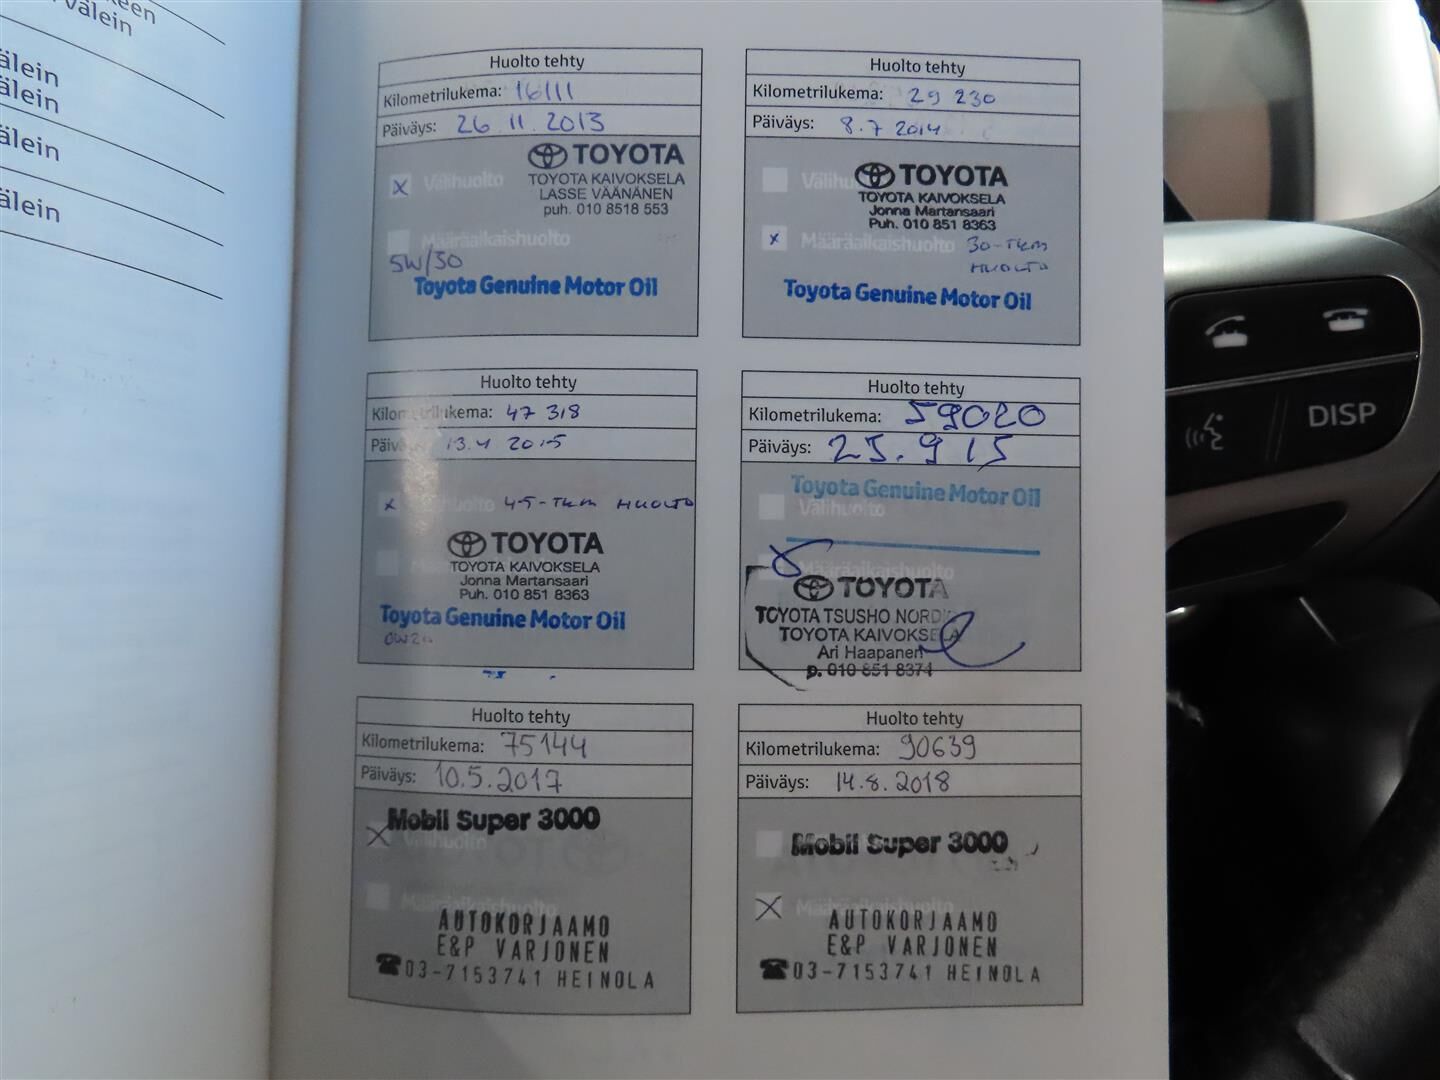 välein
älein
älein
älein
älein
Huolto tehty
Kilometrilukema: 16111
Päiväys: 26.11.2013
TOYOTA
x Välihuolto
TOYOTA KAIVOKSELA
LASSE VÄÄNÄNEN
puh. 010 8518 553
Määräaikaishuolto
5W/30
Toyota Genuine Motor Oil
Huolto tehty
Kilometrilukema: 29 230
Päiväys: 8.7 2014
Välihu
TOYOTA
TOYOTA KAIVOKSELA
Jonna Martansaari
Puh. 010 851 8363
x Määräaikaishuolto 30-TKM
HUOLTO
Toyota Genuine Motor Oil
Huolto tehty
Kilometrilukema: 47 318
Päiv 13.4 2015
x huolto 45-TKM HUOLTO
TOYOTA
TOYOTA KAIVOKSELA
Jonna Martansaari
Puh. 010 851 8363
Toyota Genuine Motor Oil
0W20
Huolto tehty
Kilometrilukema: 59020
Päiväys: 25.9 15
Toyota Genuine Motor Oil
Välihuolto
Määräaikaishuolto
TOYOTA
TOYOTA TSUSHO NORDI
TOYOTA KAIVOKSELA
Ari Haapanen
p. 010 851 8374
Huolto tehty
Kilometrilukema: 75144
Päiväys: 10.5.2017
Mobil Super 3000
x Välihuolto
Määräaikaishuolto
AUTOKORJAAMO
E&P VARJONEN
☎03-7153741 HEINOLA
Huolto tehty
Kilometrilukema: 90639
Päiväys: 14.8.2018
Mobil Super 3000
x Määräaikaishuolto
AUTOKORJAAMO
E&P VARJONEN
☎03-7153741 HEINOLA
DISP